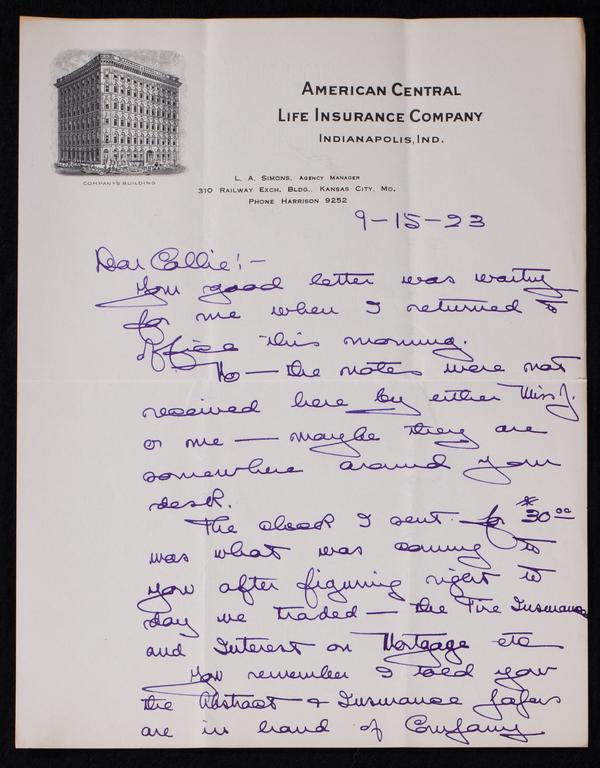 American Central
Life Insurance Company
Indianapolis, Ind.
Company's Building
L. A. Simons, Agency Manager
310 Railway Exch. Bldg., Kansas City, Mo.
Phone Harrison 9252
9-15-23
Dear Callie!-
Your good letter was waiting
for me when I returned to
office this morning.
No — the notes were not
received here by either Miss J.
or me — maybe they are
somewhere around your
desk.
The check I sent for $30.00
was what was coming to
you after figuring right to
day we traded — the Fire Insurance
and Interest on Mortgage etc
You remember I told you
the Abstract & Insurance papers
are in hand of Company